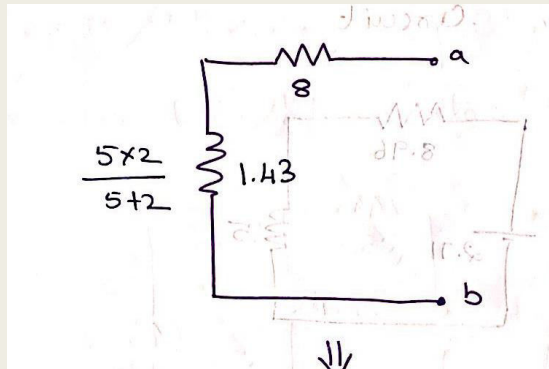 a
8
5×2
5+2
1.43
b